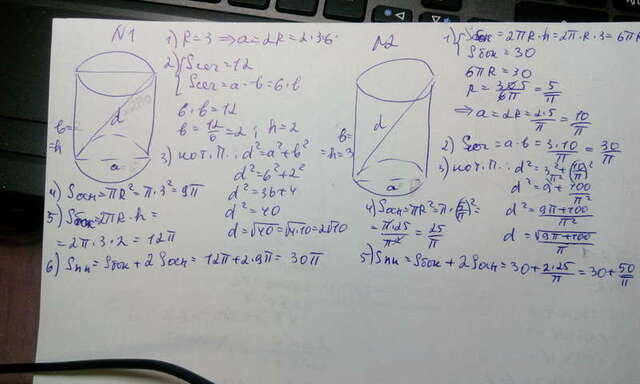 N1
1) R=3 ⇒ a=2R=2·3=6
2) {Sсеч=12
Sсеч=a·b=6·b
6·b=12
b=12/6=2; h=2
3) по т.П.: d²=a²+b²
d²=6²+2²
d²=36+4
d²=40
d=√40=√4·10=2√10
b=
=h
d
a
4) Sосн=πR²=π·3²=9π
5) Sбок=2πR·h=
=2π·3·2=12π
6) Sпп=Sбок+2Sосн=12π+2·9π=30π
N2
1) {Sбок=2πR·h=2π·R·3=6πR
Sбок=30
6πR=30
R=30/6π=5/π
⇒ a=2R=2·5/π=10/π
2) Sсеч=a·b=3·10/π=30/π
3) по т.П.: d²=3²+(10/π)²
d²=9+100/π²
d²=9π+100/π²
d=√9π+100/π
b=
=h=3
d
a
4) Sосн=πR²=π·(5/π)²=
=π·25/π²=25/π
5) Sпп=Sбок+2Sосн=30+2·25/π=30+50/π